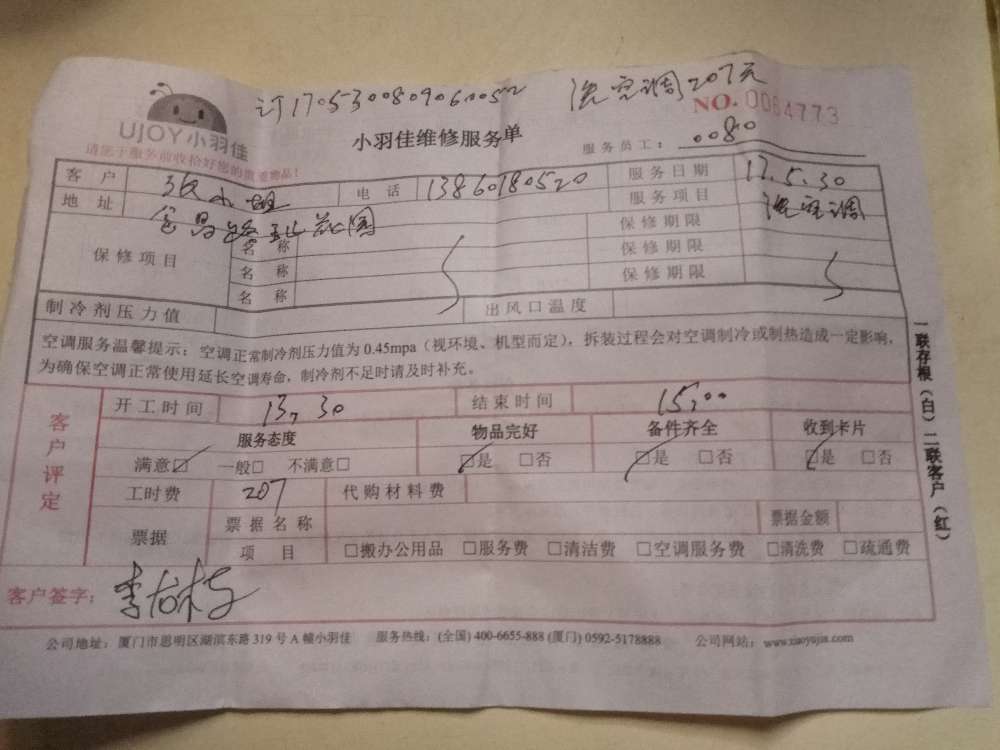 订1705300809060052 洗空调207元
NO. 0064773
UJOY小羽佳
小羽佳维修服务单
服务员工: 0080
请您于服务前收拾好您的贵重物品!
客户 张小姐 电话 13860180520 服务日期 17.5.30
地址 花园 服务项目 洗空调
保修项目 名称 保修期限
名称 保修期限
名称 保修期限
制冷剂压力值 出风口温度
空调服务温馨提示: 空调正常制冷剂压力值为 0.45mpa (视环境、机型而定), 拆装过程会对空调制冷或制热造成一定影响,
为确保空调正常使用延长空调寿命, 制冷剂不足时请及时补充。
一联存根(白) 二联客户(红)
客户评定
开工时间 13:30 结束时间 15:00
服务态度 物品完好 备件齐全 收到卡片
满意☑ 一般□ 不满意□ ☑是 □否 ☑是 □否 ☑是 □否
工时费 207 代购材料费
票据 票据名称 票据金额
项目 □搬办公用品 □服务费 □清洁费 □空调服务费 □清洗费 □疏通费
客户签字:
公司地址: 厦门市思明区湖滨东路 319 号 A 幢小羽佳 服务热线: (全国) 400-6655-888 (厦门) 0592-5178888 公司网站: www.xiaoyujia.com